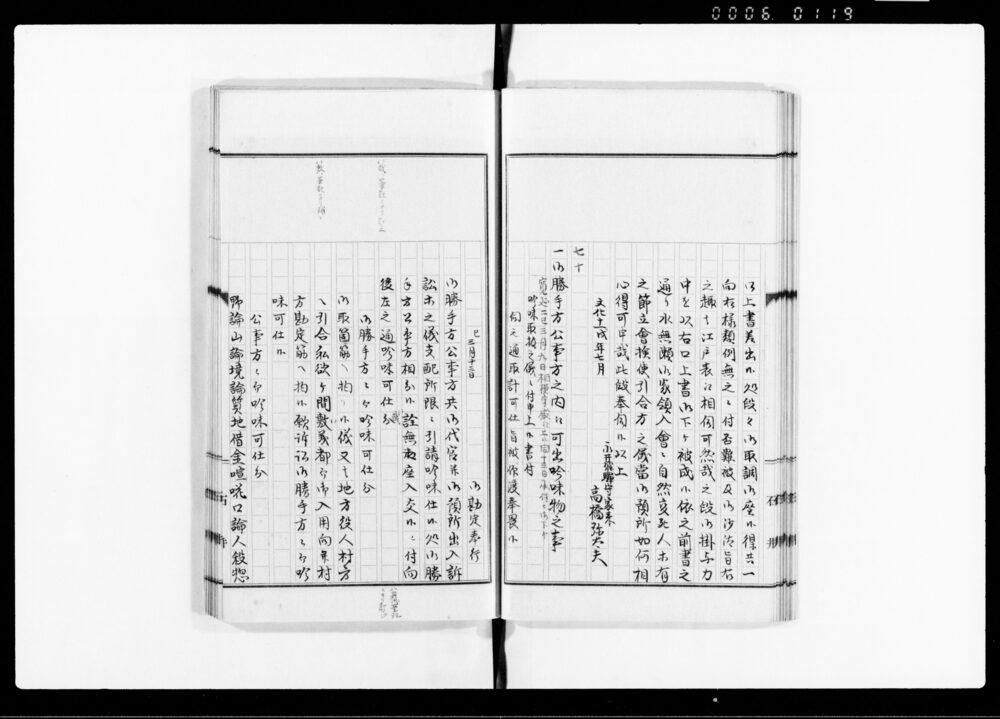 0006.0119
以上書差出候処段々御取調御座候得共一
向右様類例無之ニ付否難被及御沙汰旨右
之趣も江戸表江相伺可然哉之段御掛与力
中を以右口上書御下ケ被成候依之前書之
通り水無瀬御家領人會ニ自然変死人等有
之節立會検使引合方之儀當御預所如何相
心得可申哉此段奉伺候以上
文化十一戌年七月
高橋弥太夫
七十
一御勝手方公事方之内江可出吟味物之事
吟味取扱之儀ニ付申上候書付
伺之通取計可仕旨被仰渡奉畏候
巳三月十三日
御勘定奉行
御勝手方公事方共御代官并御預所出入訴
訟等之儀支配所限ニ引請吟味仕候処御勝
手方公事方相分候詮無御座入交候ニ付向
後左之通吟味可仕分
御勝手方ニ而吟味可仕分
御取箇筋ヘ拘り候儀又は地方役人村方
ヘ引合私欲ケ間敷義都而御入用向并村
方勘定筋ヘ拘候願訴訟御勝手方ニ而吟
味可仕候
公事方ニ而吟味可仕分
野論山論境論質地借金喧嘩口論人殺惣